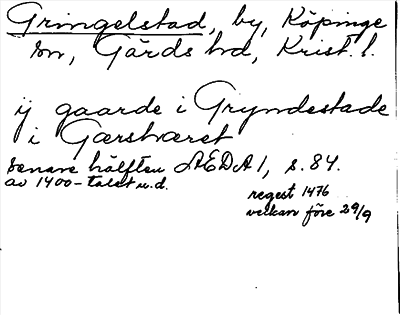 Gringelstad, by, Köpinge
sn, Gärds hd, Krist. l.
ij gaarde i Gryndestade
i Gærshæret
senare hälften ÆDA 1, s. 84.
av 1400-talet u.d.
regest 1476
veckan före 29/9